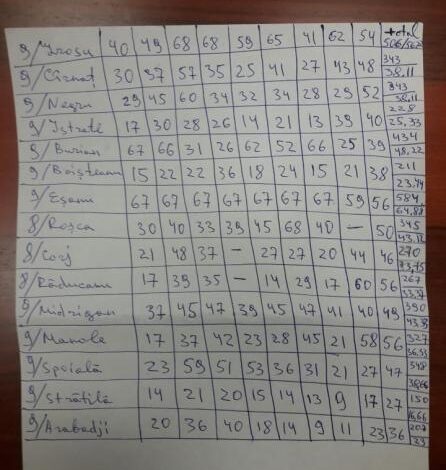 total
9/Irosu 40 49 68 68 59 65 41 62 54 506/56,2
9/Cîrnaț 30 37 57 35 25 41 27 43 48 343 38,11
9/Negru 29 45 60 34 32 34 28 29 52 343 38,11
9/Istrati 17 30 28 26 14 21 13 39 40 228 25,33
9/Burian 67 66 31 26 62 52 66 25 39 434 48,22
9/Boișteanu 15 22 22 36 18 24 15 21 38 211 23,44
9/Eșanu 67 67 67 67 67 67 67 59 56 584 64,88
8/Roșca 30 40 33 39 45 68 40 — 50 345
8/Corj 21 48 37 — 27 27 20 44 46 270
8/Răducanu 17 39 35 — 14 29 17 60 56 267
9/Midrigan 37 45 47 39 45 47 41 40 49 390
9/Manole 17 37 42 23 28 45 21 58 56 327
9/Spoială 23 59 51 53 36 31 21 27 47 348
9/Strătilă 14 21 20 15 14 13 9 17 27 150 16,66
9/Arabadji 20 36 40 18 14 9 11 23 36 207 23